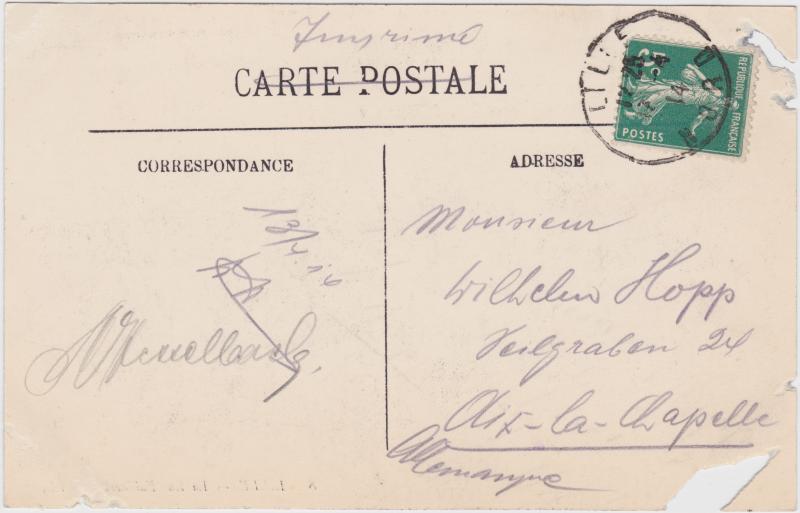 Imprimé
CARTE POSTALE
CORRESPONDANCE
ADRESSE
LILLE
RÉPUBLIQUE FRANÇAISE
POSTES
Monsieur
Wilhelm Hopp
Seilgraben 24
Aix-la-Chapelle
Allemagne